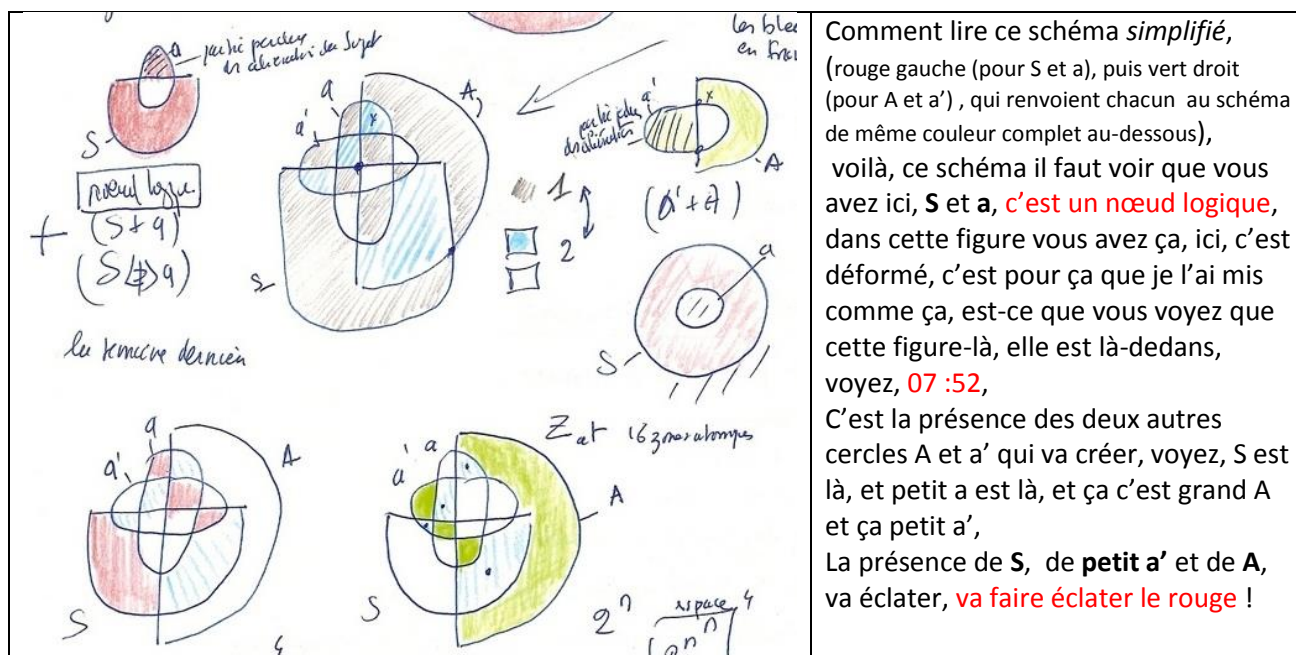 a partie perdue
du Sujet
S
nœud logique
+ (S + a)
a
a'
A
S
1
2
les ble
en
a'
x
partie perdue
A
(a' + A)
a
S
la semaine dernière
a
a'
A
S
Z at 16 zones atomiques
a
a'
A
S
2ⁿ
espace
4
Comment lire ce schéma simplifié,
(rouge gauche (pour S et a), puis vert droit
(pour A et a') , qui renvoient chacun au schéma
de même couleur complet au-dessous),
voilà, ce schéma il faut voir que vous
avez ici, S et a, c'est un nœud logique,
dans cette figure vous avez ça, ici, c'est
déformé, c'est pour ça que je l'ai mis
comme ça, est-ce que vous voyez que
cette figure-là, elle est là-dedans,
voyez, 07 :52,
C'est la présence des deux autres
cercles A et a' qui va créer, voyez, S est
là, et petit a est là, et ça c'est grand A
et ça petit a',
La présence de S, de petit a' et de A,
va éclater, va faire éclater le rouge !